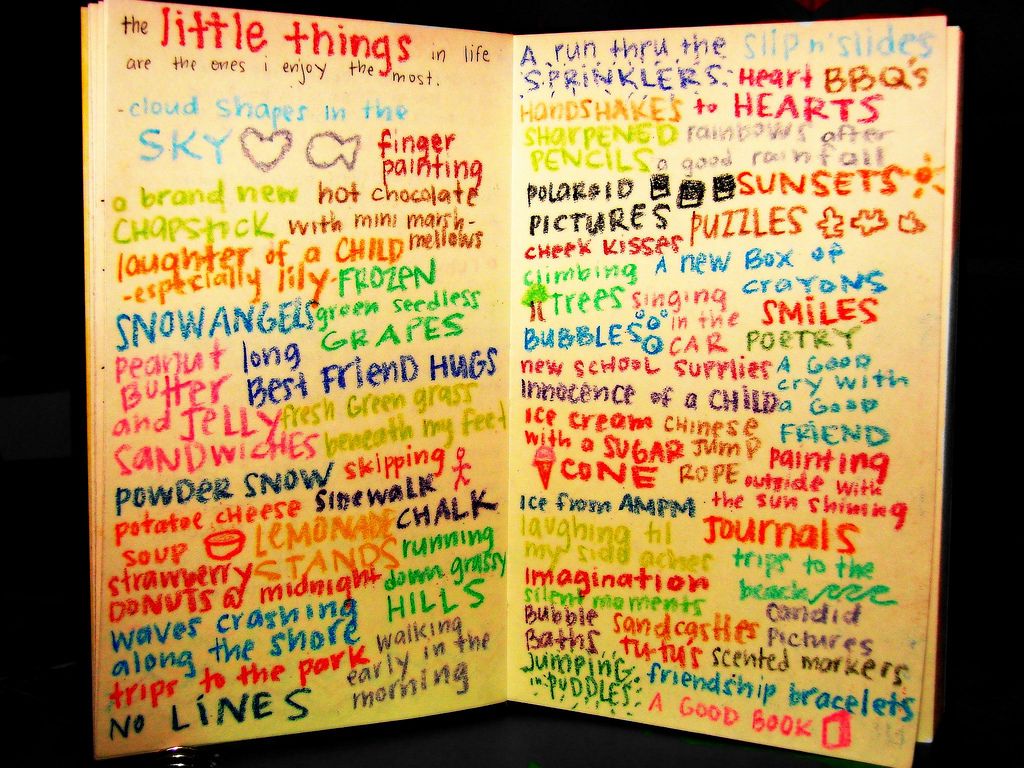 the little things in life
are the ones i enjoy the most.
-cloud shapes in the
SKY
finger
painting
a brand new
CHAPSTICK
hot chocolate
with mini marsh-
mellows
laughter of a CHILD
-especially lily-
FROZEN
green seedless
GRAPES
SNOWANGELS
peanut
Butter
and JELLY
SANDWICHES
long
Best Friend HUGS
fresh Green grass
beneath my feet
POWDER SNOW
skipping
potatoe cheese
soup
Sidewalk
CHALK
LEMONADE
STANDS
strawberry
DONUTS @ midnight
running
down grassy
HILLS
waves crashing
along the shore
trips to the park
walking
early in the
morning
NO LINES
A run thru the
SPRINKLERS.
slip n' slides
Heart BBQ's
HANDSHAKES to HEARTS
SHARPENED
PENCILS
rainbows after
a good rainfall
POLAROID
PICTURES
SUNSETS
PUZZLES
cheek kisses
climbing
trees
A new Box of
crayons
singing
in the
CAR
SMILES
BUBBLES
POETRY
new school supplies
A Good
cry with
a Good
FRIEND
Innocence of a CHILD
ice cream
with a SUGAR
CONE
CHINESE
JUMP
ROPE
painting
outside with
the sun shining
Ice from AMPM
laughing til
my side aches
Journals
trips to the
beach
Imagination
silent moments
candid
pictures
Bubble
Baths
sandcastles
TUTUS
scented markers
Jumping
in PUDDLES.
friendship bracelets
A GOOD BOOK